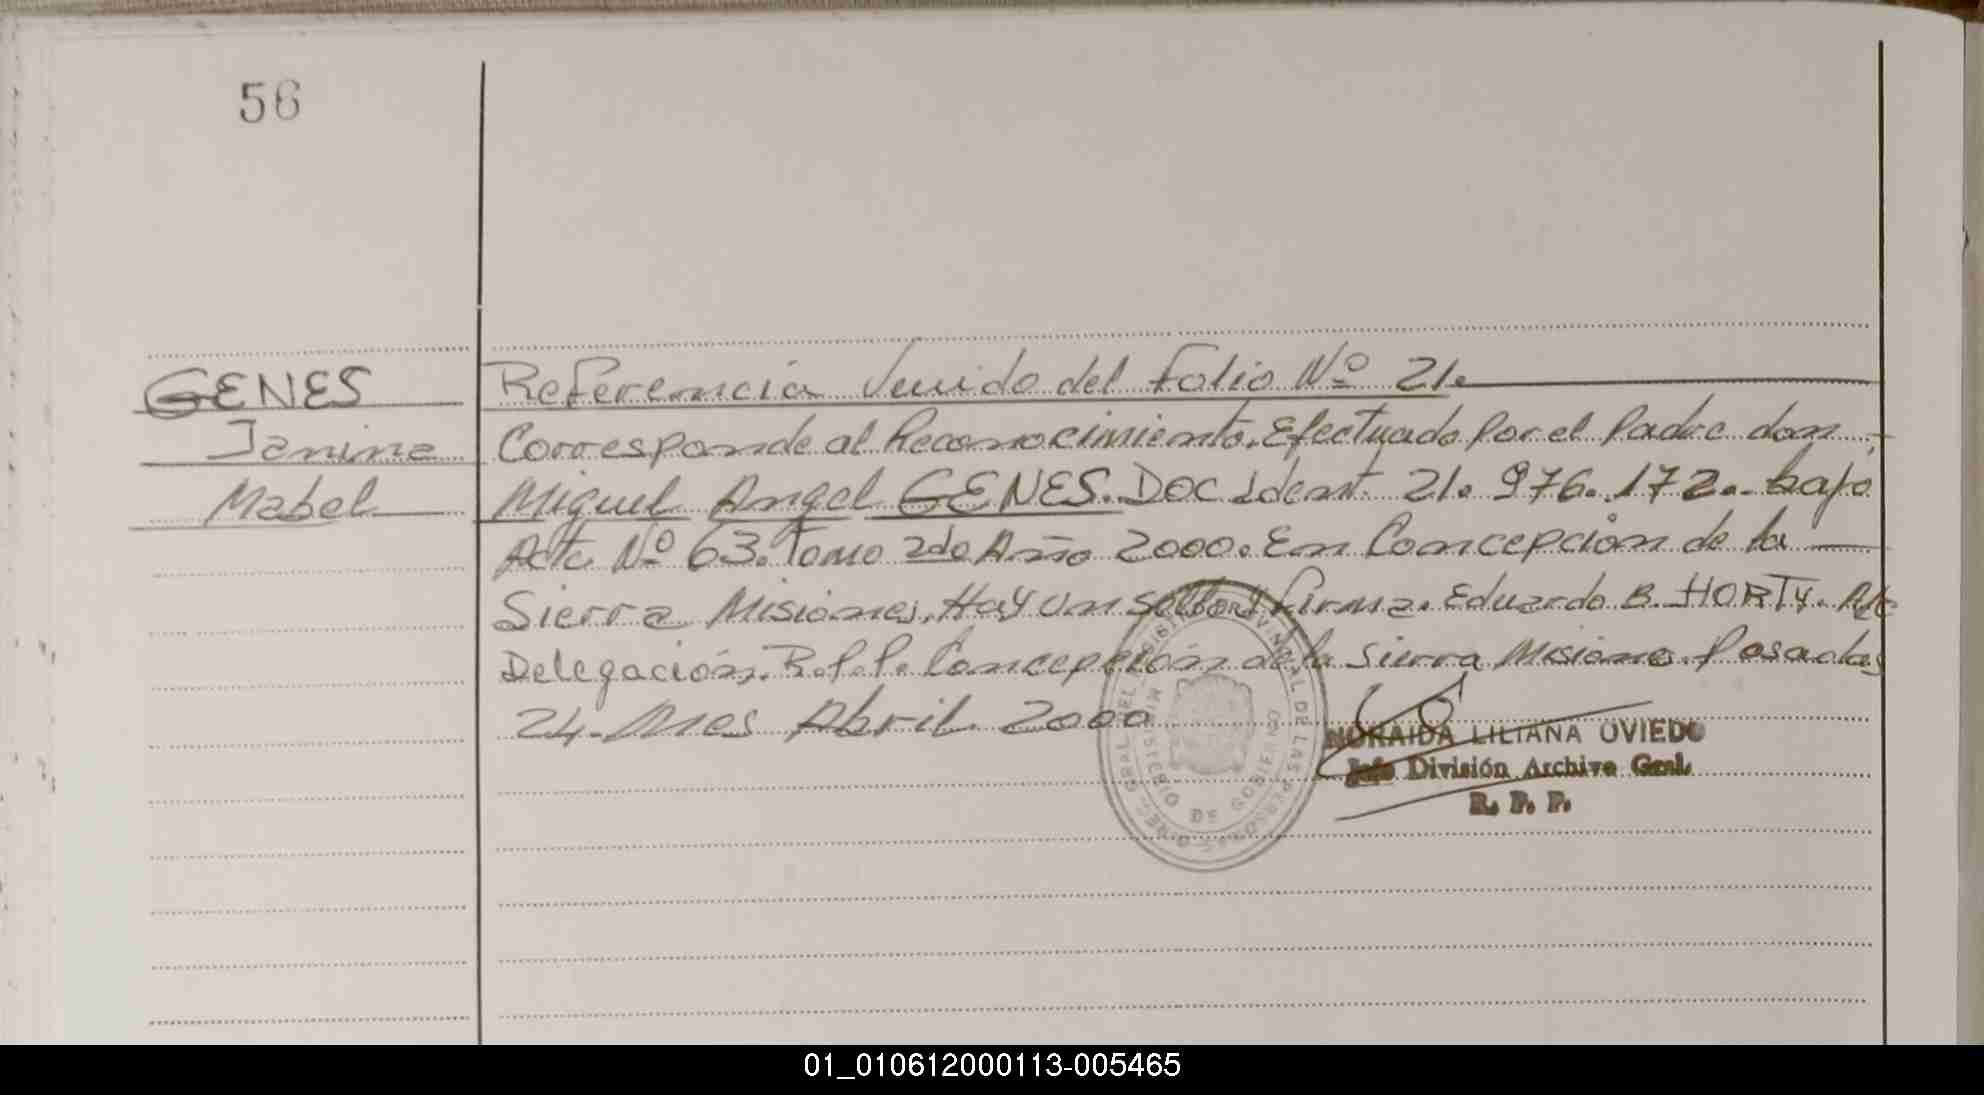 56
GENES
Janina
Mabel
Referencia Venido del folio Nº 21.
Corresponde al Reconocimiento. Efectuado Por el Padre don
Miguel Angel GENES. Doc Ident. 21.976.172. bajo
Acta Nº 63. Tomo 2do Año 2000. En Concepción de la
Sierra Misiones. Hay un sello y firma. Eduardo B. HORTY.
Delegación. R.P.P. Concepción de la Sierra Misiones. Posadas
24. Mes Abril 2000
NORAIDA LILIANA OVIEDO
Jefe División Archivo Gral.
R. P. P.
01_010612000113-005465